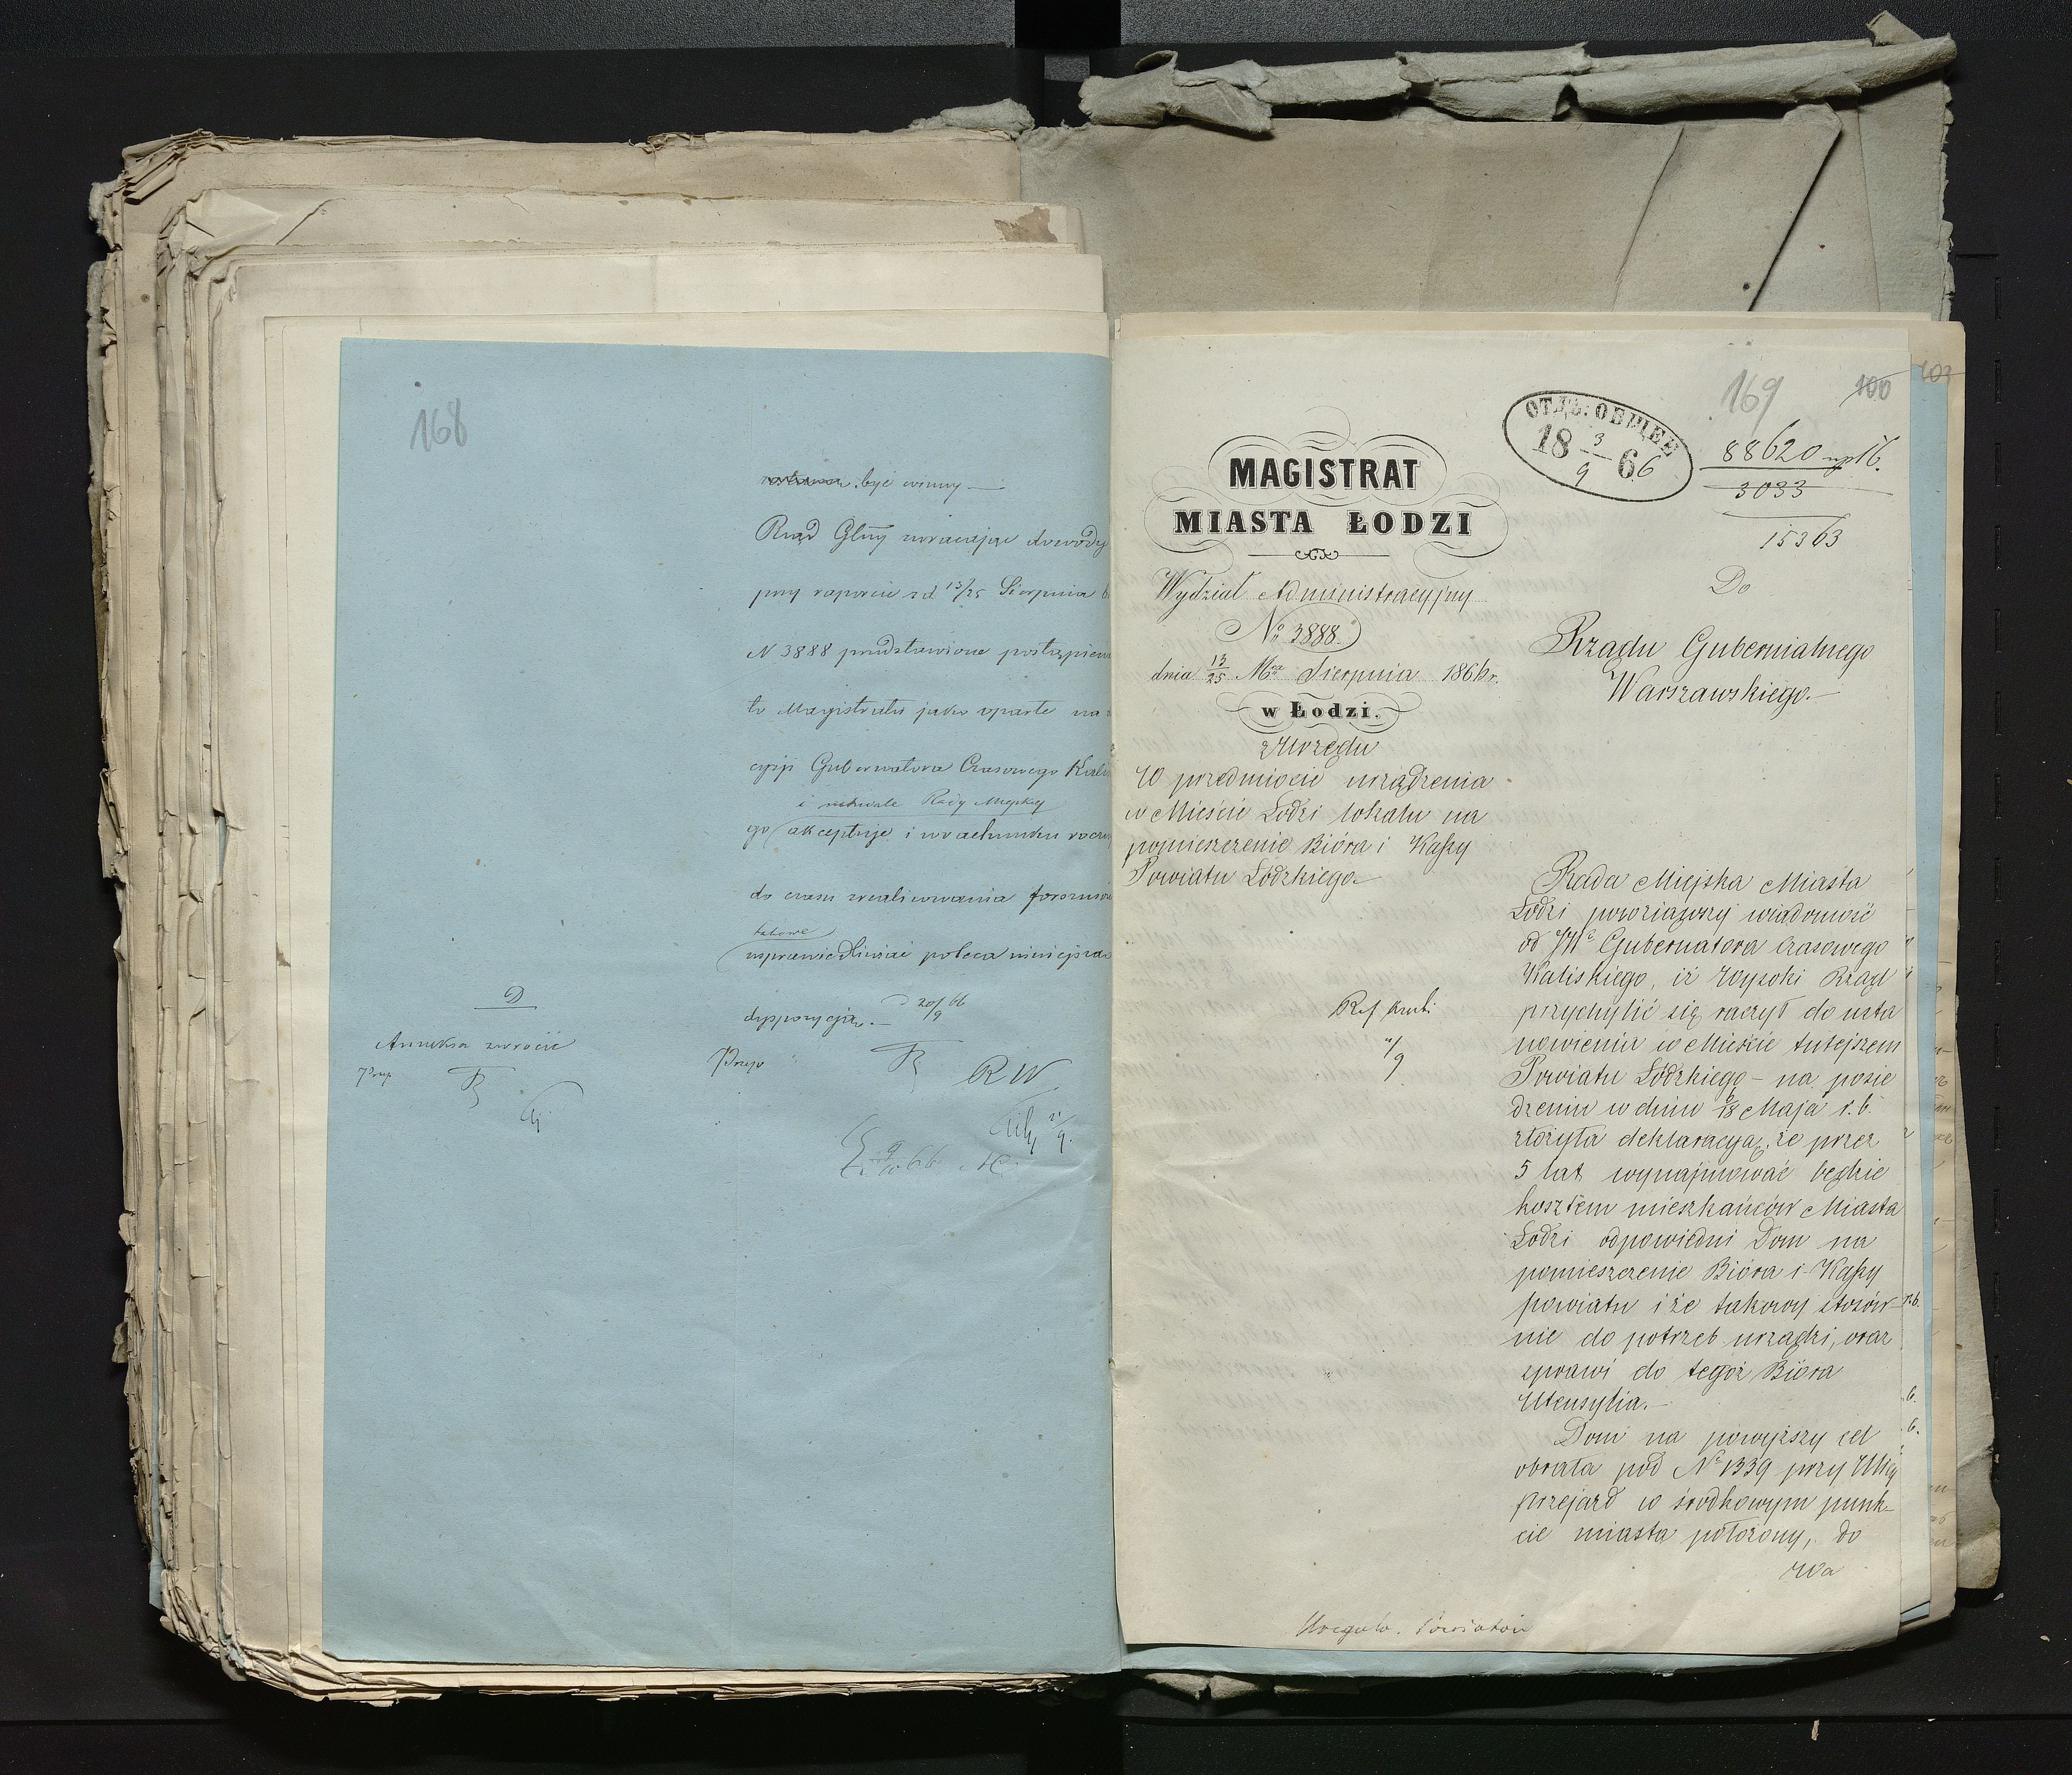 168
być winny —
Rząd Glny zwracając dowody
przy raporcie z d 13/25 Sierpnia
N 3888 przedstawione postąpien
to Magistratu jako oparte na
cyzji Gubernatora Czasowego Kali
i uchwale Rady Miejskiej
go akceptuje i w rachunku
do czasu zrealizowania
takowe
usprawiedliwiać poleca niniejsza
dyspozycja. —
20/9 66
D
Anneksa zwrócić
RW
169
100
ОТДѢ: ОБЩЕЕ
18 3/9 66
88620
3033
15363
MAGISTRAT
MIASTA ŁODZI
Wydział Administracyjny
No 3888.
dnia 13/25 Mca Sierpnia 1866 r.
w Łodzi.
z Urzędu
W przedmiocie urządzenia
w Mieście Łodzi lokalu na
pomieszczenie Bióra i Kassy
Powiatu Łódzkiego —
Do
Rządu Gubernialnego
Warszawskiego. —
Rada Miejska Miasta
Łodzi powziąwszy wiadomość
od JWo Gubernatora Czasowego
Kaliskiego, iż Wysoki Rząd
przychylić się raczył do usta
nowienia w Mieście tutejszem
Powiatu Łódzkiego – na posie
dzeniu w dniu 6/18 Maja r. b.
złożyła deklaracyą, że przez
5 lat wynajmować będzie
kosztem mieszkańców Miasta
Łodzi odpowiedni Dom na
pomieszczenie Bióra i Kassy
powiatu i że takowy stosow-
nie do potrzeb urządzi, oraz
sprawi do tegoż Bióra
Utensylia. —
Dom na powyższy cel
obrała pod No 1339 przy Ulicy
przejazd w środkowym punk-
cie miasta położony, do
Wa
Uregulo. Powiatów